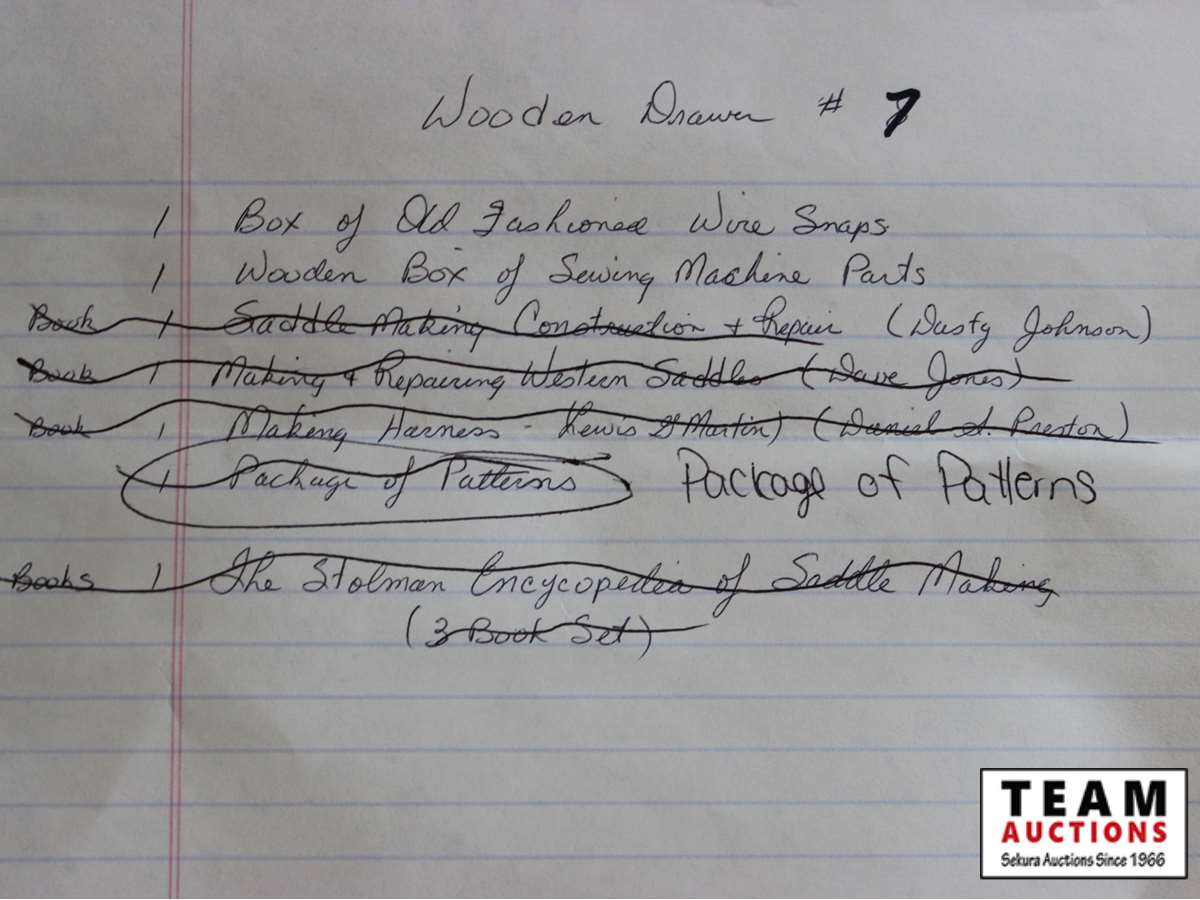 Wooden Drawer # 7
1 Box of Old Fashioned Wire Snaps
1 Wooden Box of Sewing Machine Parts
Book 1 Saddle Making Construction + Repair (Dusty Johnson)
Book 1 Making + Repairing Western Saddles (Dave Jones)
Book 1 Making Harness - Lewis & Martin) (Daniel A. Preston)
1 Package of Patterns Package of Patterns
Books 1 The Stolman Encycopedia of Saddle Making
(3 Book Set)
TEAM
AUCTIONS
Sekura Auctions Since 1966